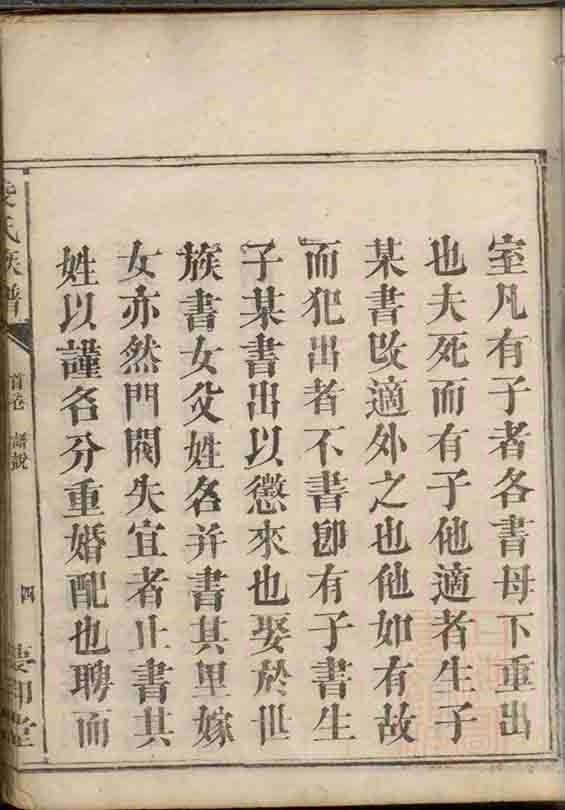 室凡有子者各書母下重出
也夫死而有子他適者生子
某書改適外之也他如有故
而犯出者不書卽有子書生
子某書出以懲來也娶於世
族書女父姓名并書其里嫁
女亦然門閥失宜者止書其
姓以謹名分重婚配也聘而
氏族譜
首卷 譜說
四
堂